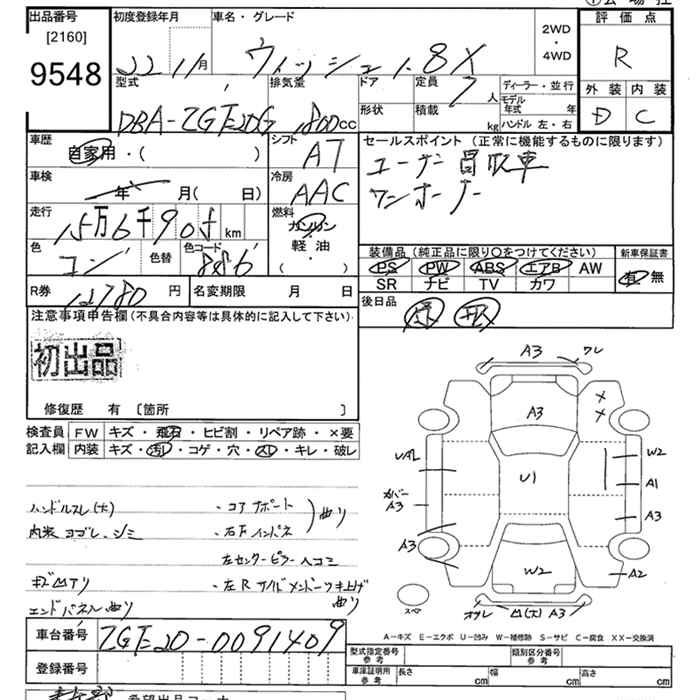 出品番号 初度登録年月 車名・グレード 2WD・4WD 評価点
[2160] 22 11月 ウィッシュ 1.8X R
9548
型式 排気量 ドア 定員 7人 ディーラー・並行 外装 内装
DBA-ZGE20G 1800cc 形状 積載 kg モデル年式 年 D C
ハンドル 左・右
車歴 自家用・( ) シフト AT セールスポイント (正常に機能するものに限ります)
ユーザー買取車
車検 年 月(日) 冷房 AAC ワンオーナー
走行 15万6千905 km 燃料 ガソリン
軽油
( )
色 コン 色替 色コード 8S6
装備品 (純正品に限り○をつけてください) 新車保証書
PS PW ABS エアB AW 有・無
SR ナビ TV カワ
R券 12780円 名変期限 月 日 後日品
注意事項申告欄 (不具合内容等は具体的に記入して下さい)
初出品
修復歴 有 [箇所 ]
検査員記入欄 FW キズ・飛石・ヒビ割・リペア跡・×要
内装 キズ・汚れ・コゲ・穴・スレ・キレ・破レ
A3 ワレ
A3 × ×
UAL U1 W2
カバー A3 A1
A3
A3 W2 A2
スペア A3
ハンドルスレ(大) ・コアサポート 曲り
内装 ヨゴレ、シミ ・右Fインパネ
・左センターピラー 凹コミ
キズ凹アリ ・左Rサイドメンバーつき上げ 曲り
エンドパネル曲り
A-キズ E-エクボ U-凹み W-補修跡 S-サビ C-腐食 XX-交換済
車台番号 ZGE20-0091409
型式指定番号 参考 類別区分番号 参考
登録番号 車庫証明用 参考 長さ cm 幅 cm 高さ cm
希望出品コーナー